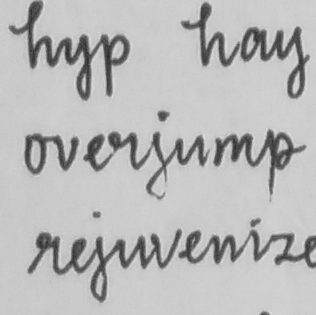 hyp hay
overjump
rejuvenize